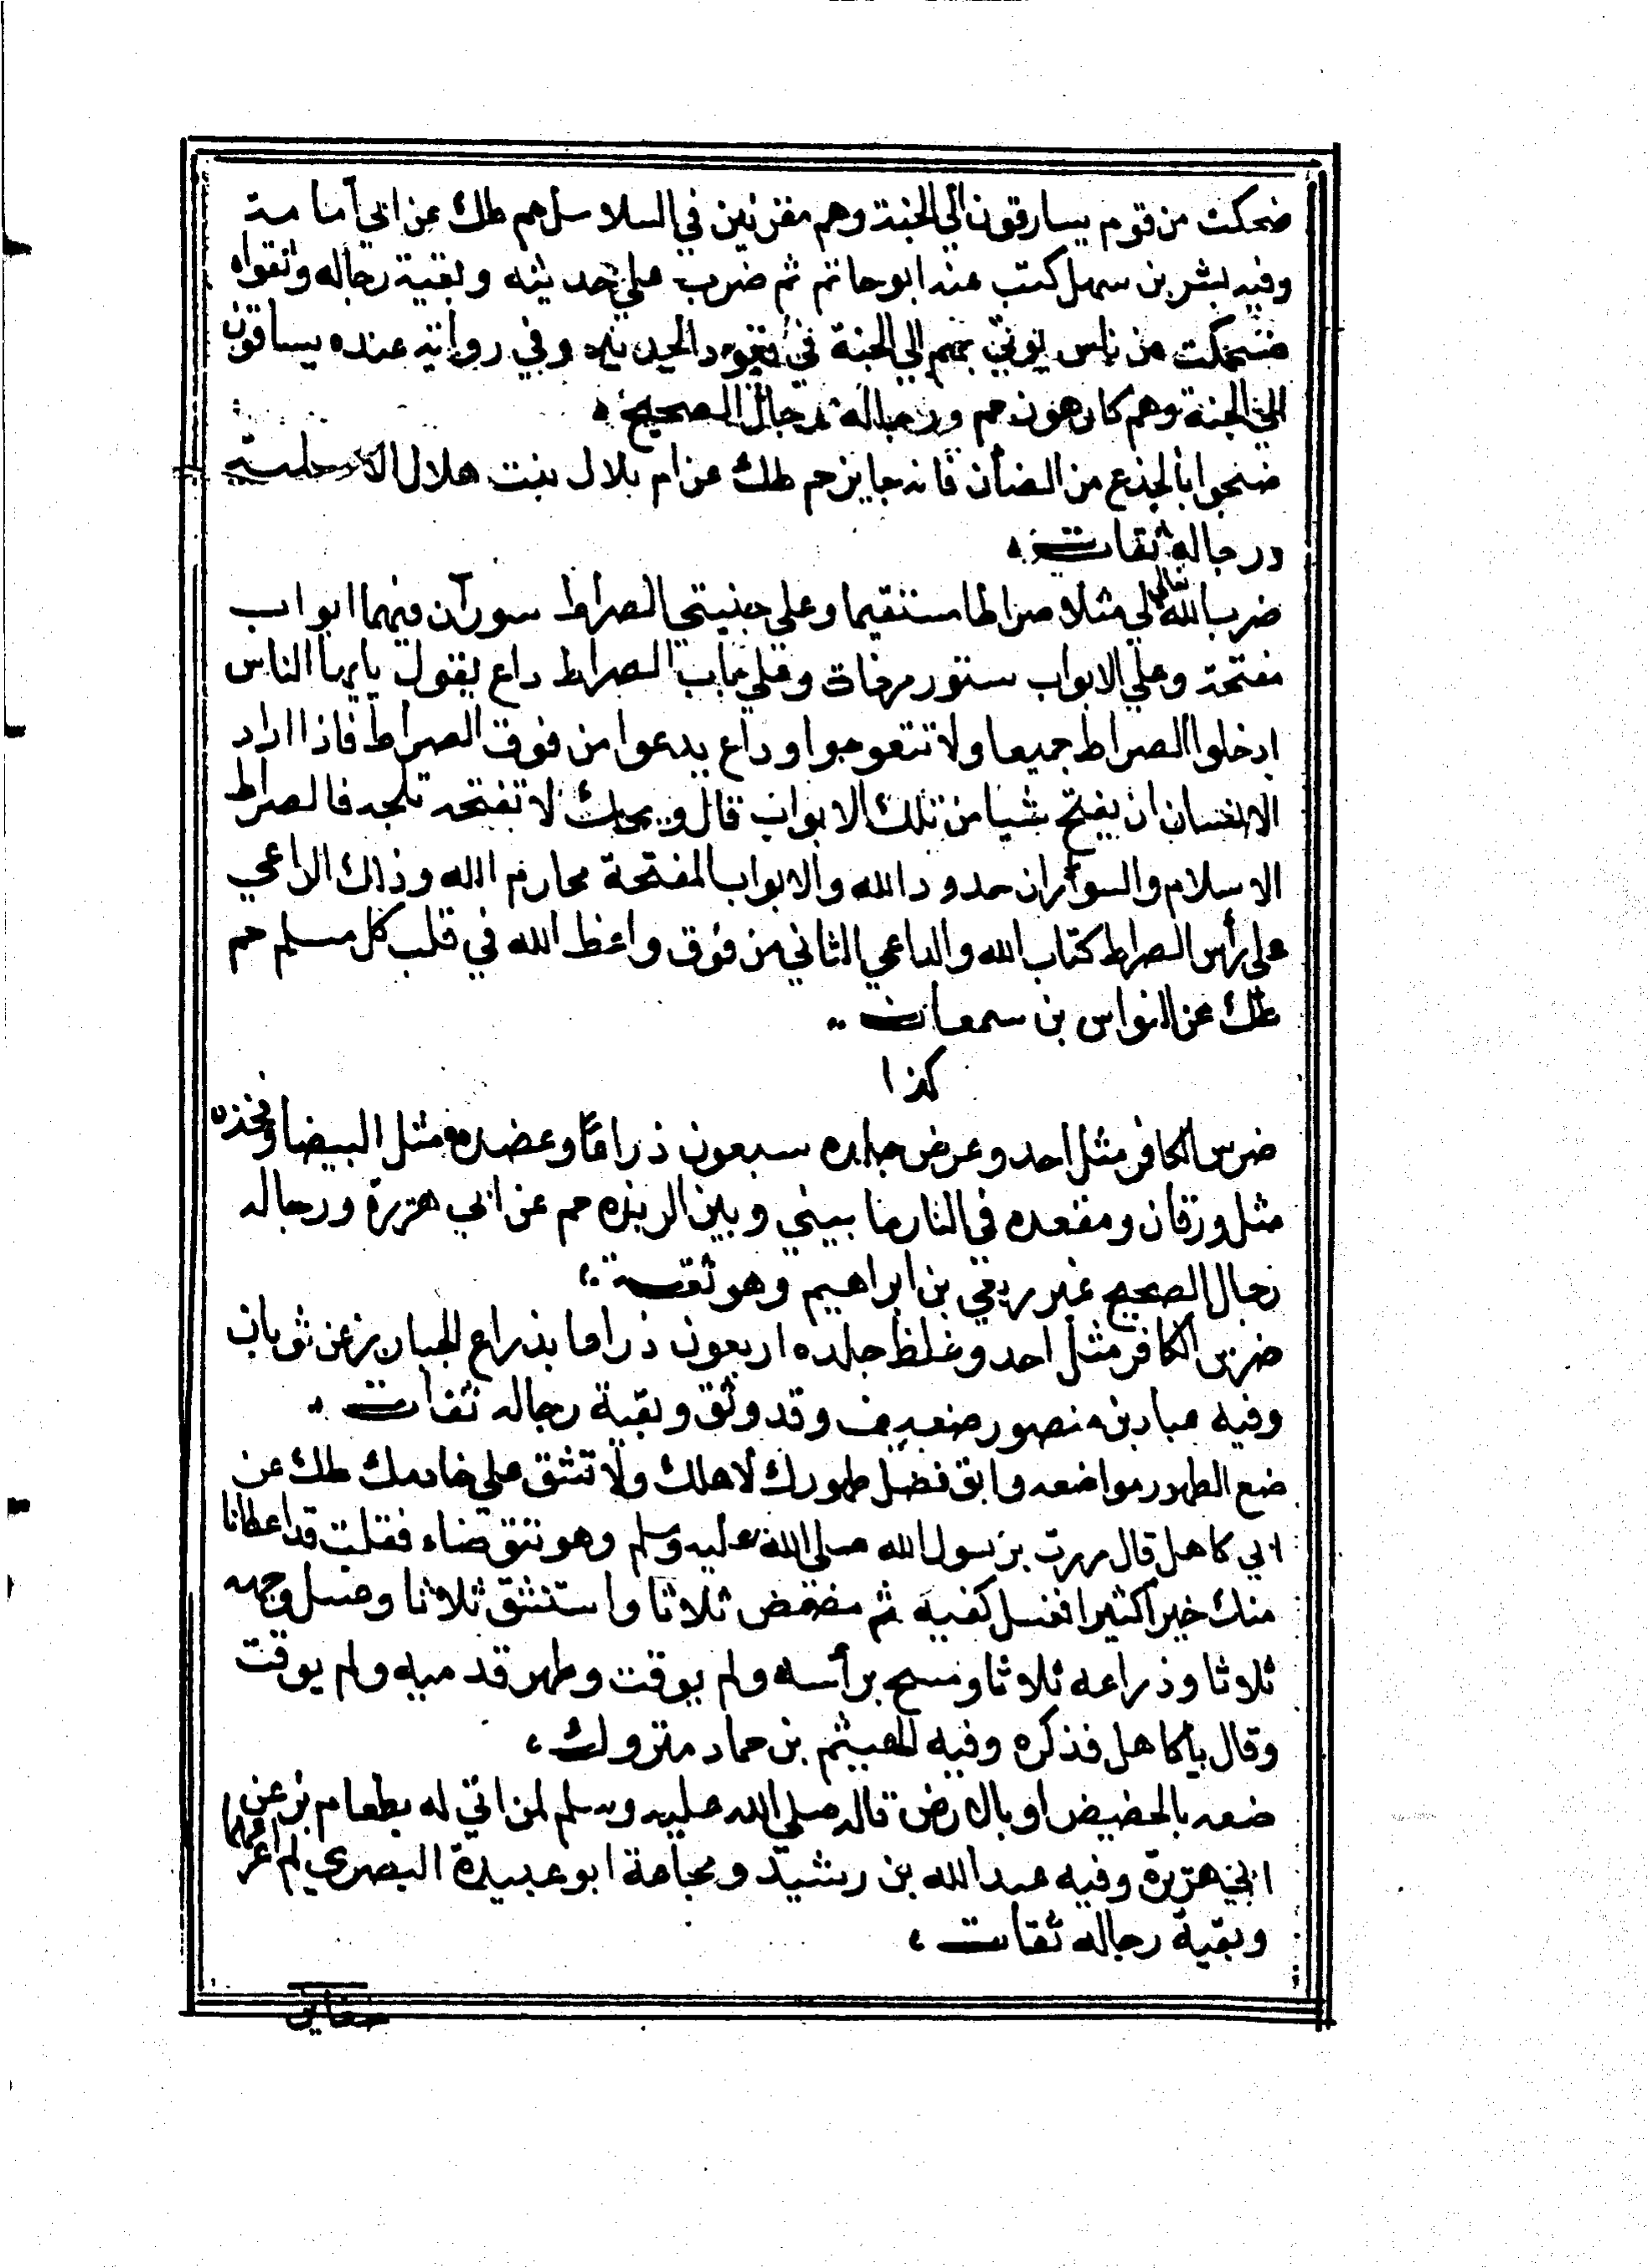 ضحكت من قوم يسارقون الي الجنة وهم مقرنين في السلاسل حم طك عن ابي امامة
وفيه بشر بن سهل كتب عنه ابو حاتم ثم ضرب علي حديثه وبقية رجاله وثقوا
ضحكت من ناس يوتي بهم الي الجنة في قيود الحديد وفي رواية عنده يساقون
الي الجنة وهم كارهون حم ورجاله رجال الصحيح
ضحوا بالجذع من الضأن فانه جايز حم طك عن ام بلال بنت هلال الاسلمية
ورجاله ثقات
ضرب الله تعالي مثلا صراطا مستقيما وعلي جنبتي الصراط سوران فيهما ابواب
مفتحة وعلي الابواب ستور مرخات وعلي باب الصراط داع يقول يايها الناس
ادخلوا الصراط جميعا ولا تتعوجوا وداع يدعوا من فوق الصراط فاذا اراد
الانسان ان يفتح شيا من تلك الابواب قال ويحك لا تفتحه تلجه فالصراط
الاسلام والسوران حدود الله والابواب المفتحة محارم الله وذلك الداعي
علي رأس الصراط كتاب الله والداعي الثاني من فوق واعظ الله في قلب كل مسلم حم
طك عن النواس بن سمعان
كذا
ضرس الكافر مثل احد وعرض جلده سبعون ذراعا وعضده مثل البيضا وفخذه
مثل ورقان ومقعده في النار ما بيني وبين الربذه حم عن ابي هريرة ورجاله
رجال الصحيح غير ربعي بن ابراهيم وهو ثقة
ضرس الكافر مثل احد وغلظ جلده اربعون ذراعا بذراع الجبار بز عن ثوبان
وفيه عباد بن منصور ضعيف وقد وثق وبقية رجاله ثقات
ضع الطهور مواضعه وابق فضل طهورك لاهلك ولا تشق علي خادمك طك عن
ابي كاهل قال مررت برسول الله صلي الله عليه وسلم وهو يتوضاء فقلت قد اعطانا
منك خيرا كثيرا فغسل كفيه ثم مضمض ثلاثا واستنشق ثلاثا وغسل وجهه
ثلاثا وذراعه ثلاثا ومسح برأسه ولم يوقت وطهر قدميه ولم يوقت
وقال يا با كاهل فذكره وفيه الهيثم بن حماد متروك
ضعه بالحضيض او بالارض قاله صلي الله عليه وسلم لمن اتي له بطعام بز عن
ابي هريرة وفيه عبد الله بن رشيد ومجاعة ابو عبيدة البصري لم اعرفهما
وبقية رجاله ثقات